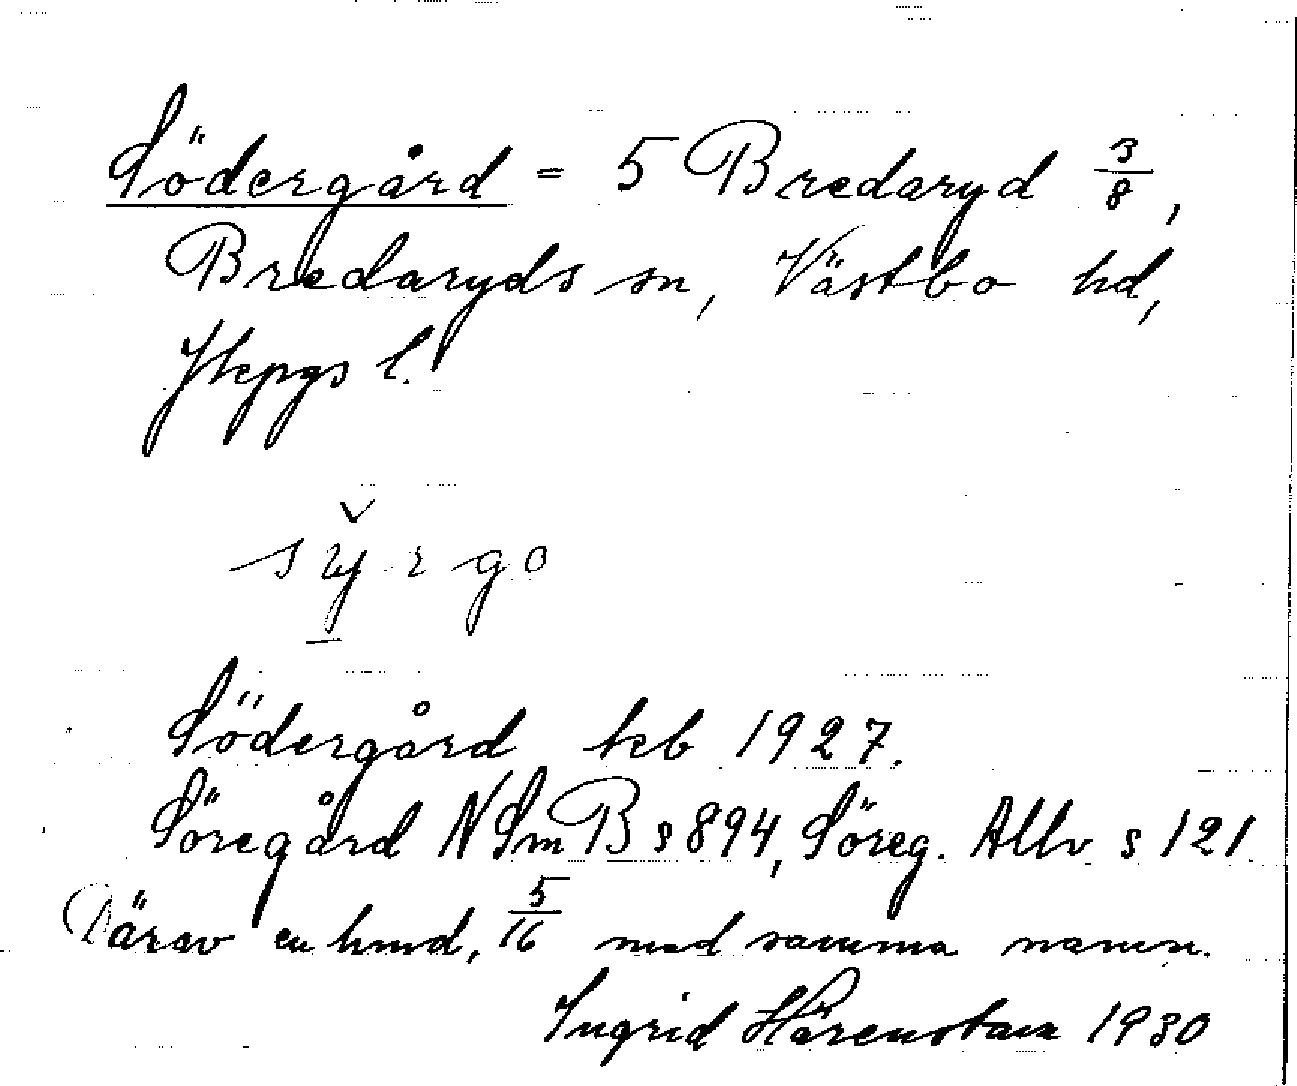 Södergård = 5 Bredaryd 3/8,
Bredaryds sn, Västbo hd,
Jkpgs l.
Södergård teb 1927.
Söregård NSmB s 894, Söreg. Allv s 121
Därav en hmd, 5/16 med samma namn.
Ingrid Härenstam 1930